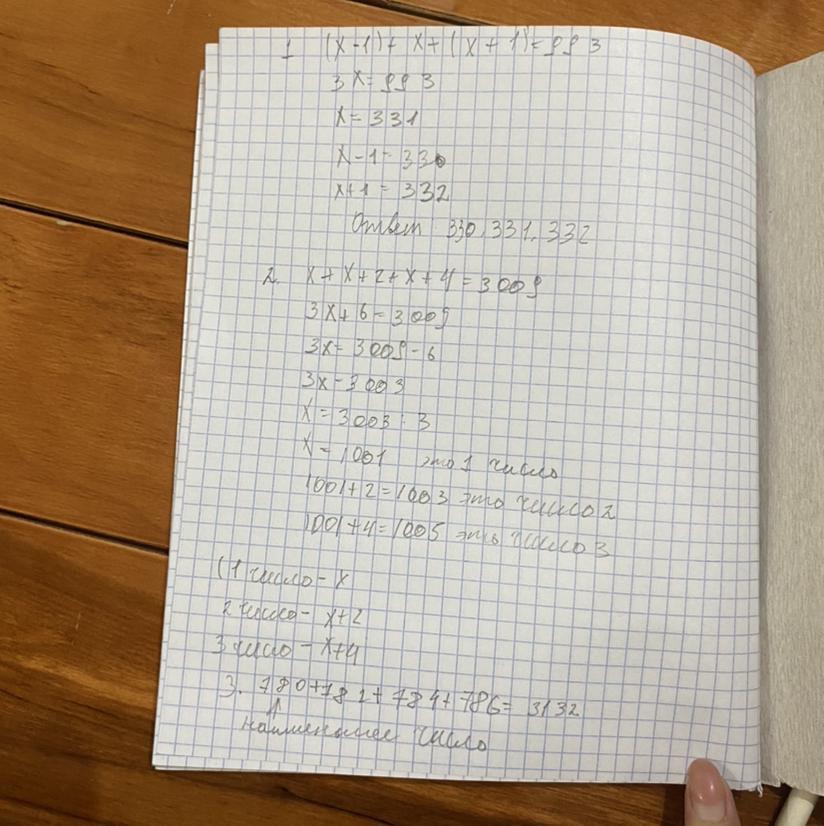 1 (x-1)+x+(x+1)=993
3x=993
x=331
x-1=330
x+1=332
Ответ 330,331,332
2. x+x+2+x+4=3009
3x+6=3009
3x=3009-6
3x=3003
x=3003:3
x=1001 это 1 число
1001+2=1003 это число 2
1001+4=1005 это число 3
(1 число-x
2 число-x+2
3 число-x+4
3. 780+782+784+786=3132
↑
наименьшее число